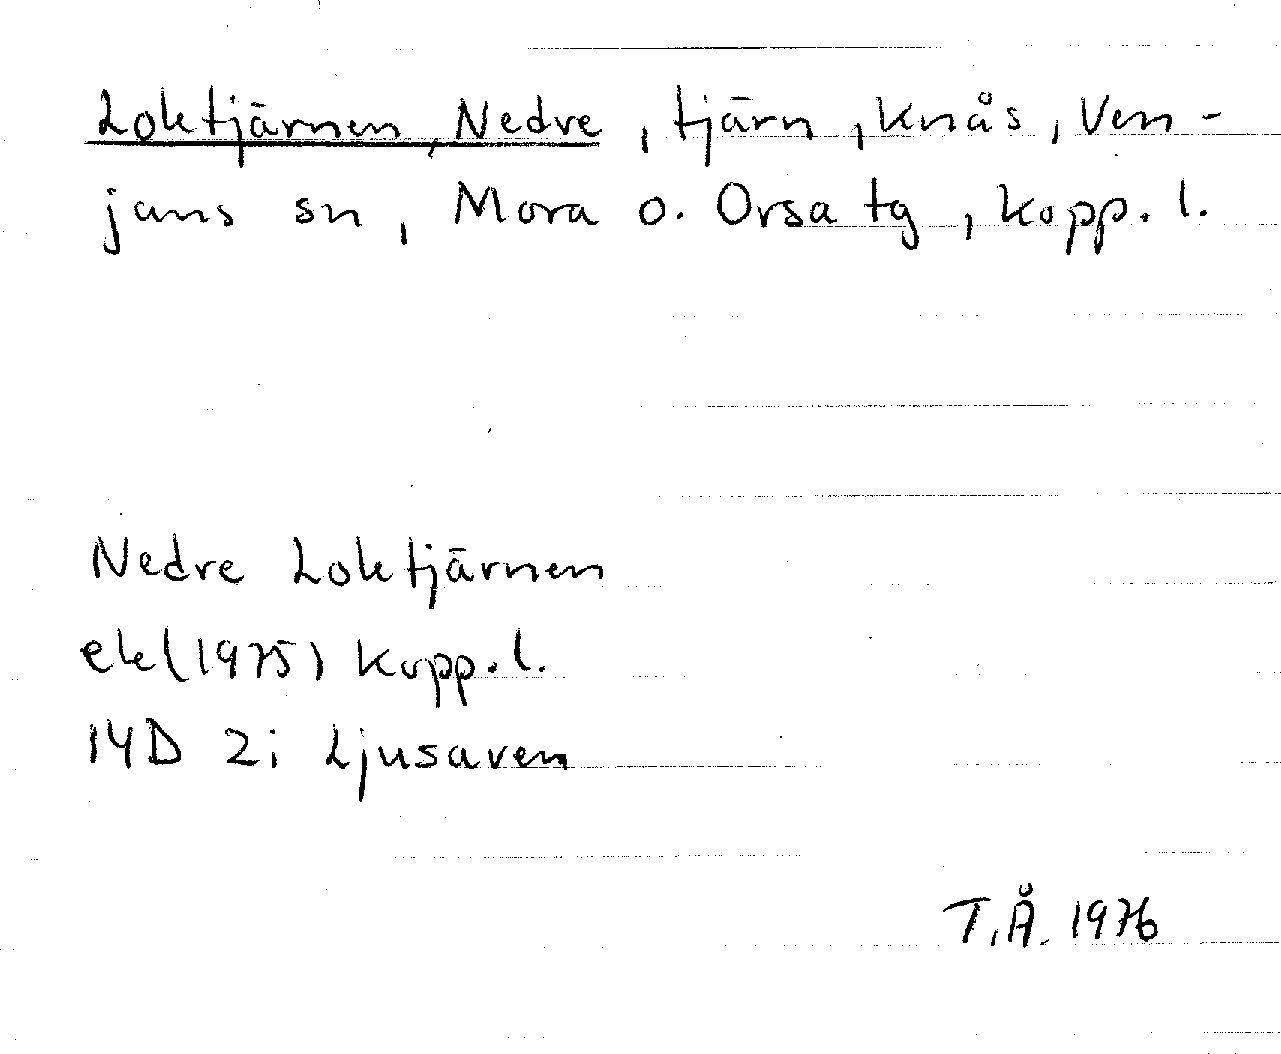 Loktjärnen, Nedre, tjärn, Knås, Ven-
jans sn, Mora o. Orsa tg, Kopp. l.
Nedre Loktjärnen
ek(1975) Kopp. l.
14D 2i Ljusaven
T.Å. 1976